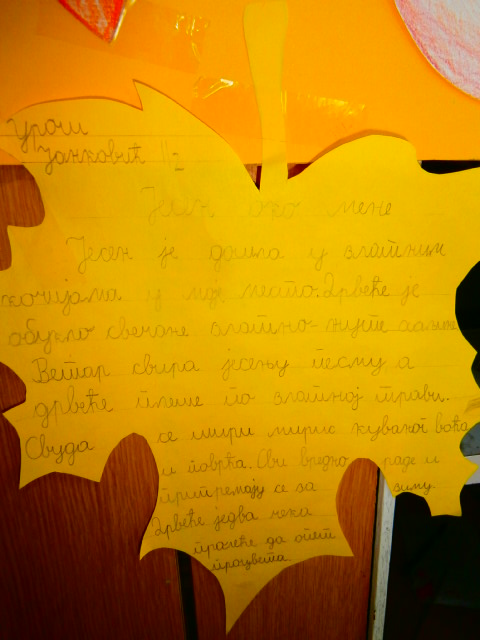 Урош
Јанковић I2
Јесен око мене
Јесен је дошла у златним
кочијама у моје место. Дрвеће је
обукло свечане златно-жуте хаљине.
Ветар свира јесењу песму а
дрвеће плеше по златној трави.
Свуда се шири мирис куваног воћа
и поврћа. Сви вредно раде и
припремају се за зиму.
Дрвеће једва чека
пролеће да опет
процвета.